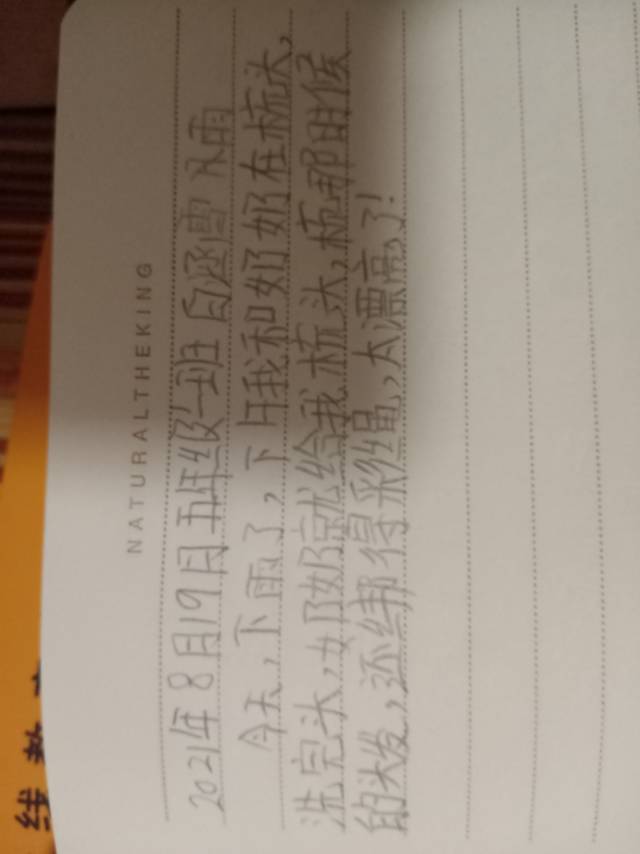 NATURALTHEKING
2021年8月19日五年级一班 白涵雪 雨
今天,下雨了,下午我和奶奶在梳头,
洗完头,奶奶就给我梳头,梳那时候
的头发,还绑得彩绳,太漂亮了!
线 教